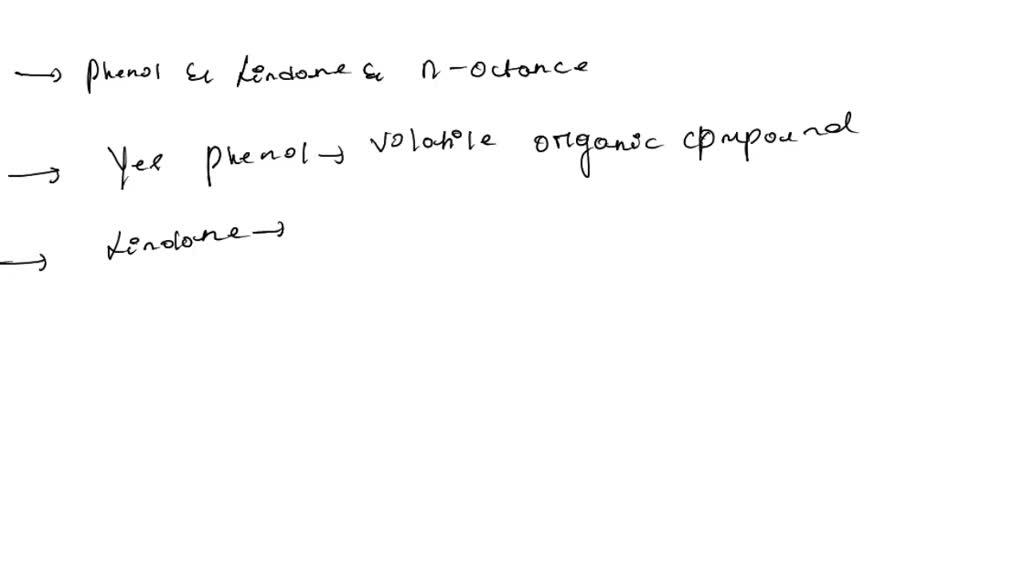 → phenol & Lindane & n-octance
→ Yes phenol → volatile organic cpmpound
→ Lindane →